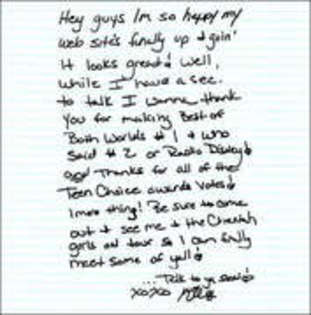 Hey guys Im so happy my
web site's finally up & goin'
It looks great! Well,
While I have a sec.
to talk I wanna thank
You for making Best of
Both Worlds # 1 & who
Said # 2 on Radio Disney!
Thanks for all of the
Teen Choice awards Votes!
1 more thing! Be sure to come
out & see me & the Cheetah
girls on tour so I can finally
meet some of yall!
... Talk to ya soon!
xoxo